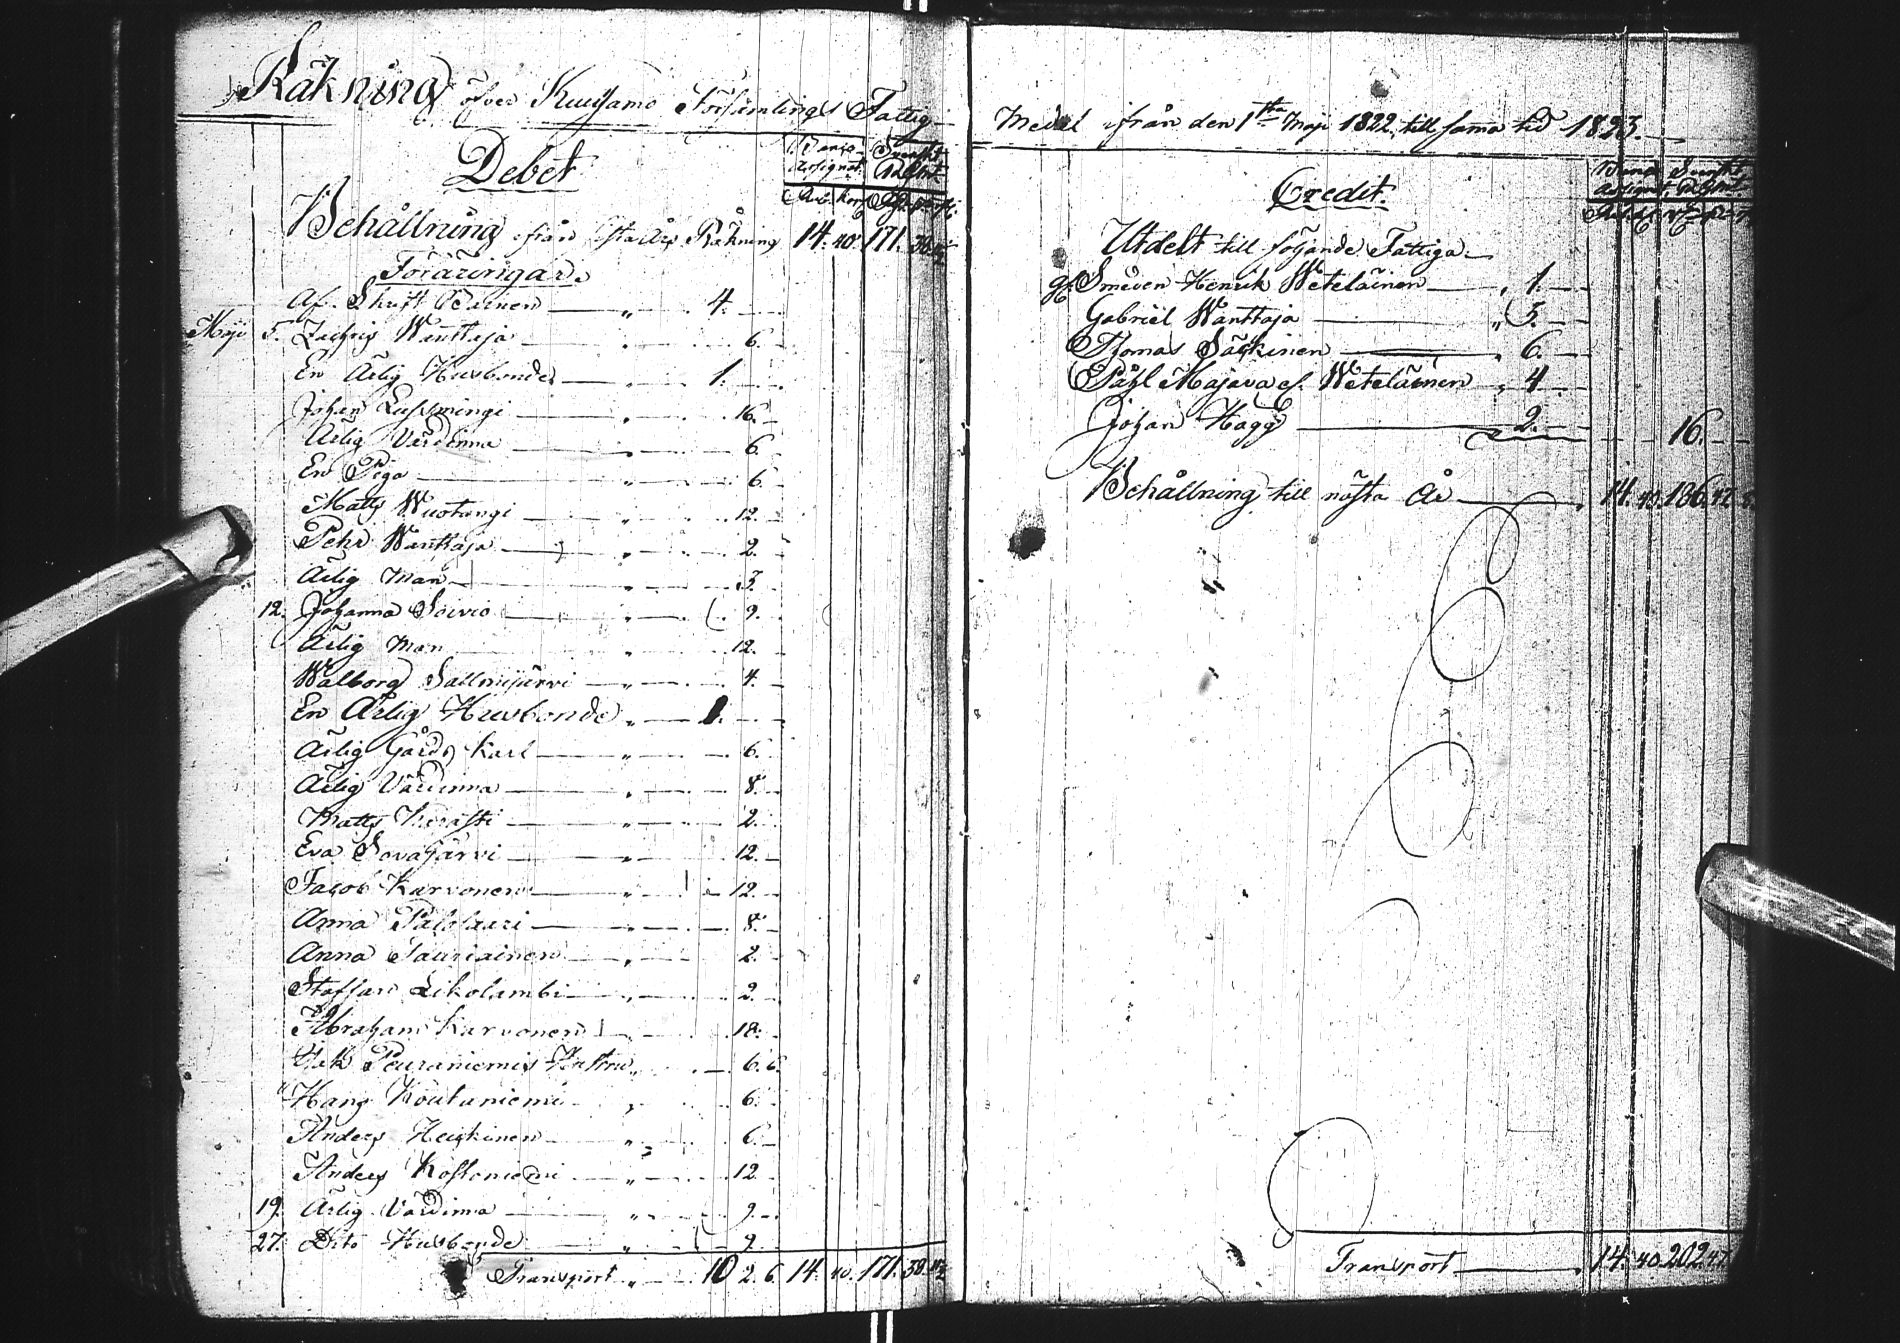 Räkning öfver Kuusamo Församlings Fattig
Debet
Banco Assignat. Svenskt Rgmt
Behållning ifrån sista års Räkning 14. 40. 171. 38.
Föräringar.
Af Skrift Karnen " 4.
Maji 5. Zachris Wanttaja " 6.
En Ärlig Husbonde " 1.
Johan Lassmingi " 16.
Ärlig Värdinna " 6.
En Piga " 6.
Matts Wuotungi " 12.
Pehr Wanttaja " 2.
Ärlig Man " 3.
12. Johanna Soivio " 9.
Ärlig Man " 12.
Walborg Sallmijärvi " 4.
En Ärlig Husbonde " 1.
Ärlig Gårds Karl " 6.
Ärlig Värdinna " 8.
Matts " 2.
Eva Sovajärvi " 12.
Jacob Karvonen " 12.
Anna Palosaari " 8.
Anna Tauriainen " 2.
Staffan Likolambi " 2.
Abraham Karvonen " 18.
Erik Peuraniemis Hustru " 6. 6.
Hans Koutaniemi " 6.
Anders Heikkinen " 6.
Anders Kostoniemi " 12.
19. Ärlig Värdinna " 9.
27. Dito Husbonde " 9.
Transport " 10 2. 6. 14. 40. 171. 38.
Medel ifrån den 1sta Maji 1822 till sama tid 1823.
Credit.
Utdelt till följande Fattiga
Gf. Smeden Henrik Weteläinen " 1.
Gabriel Wanttaja " 3.
Thomas Säkkinen " 6.
Påhl Majava el. Weteläinen " 4
Johan Hägg 2. 16.
Behållning till nästa År 14. 40. 186. 47
Transport 14. 40. 202. 47